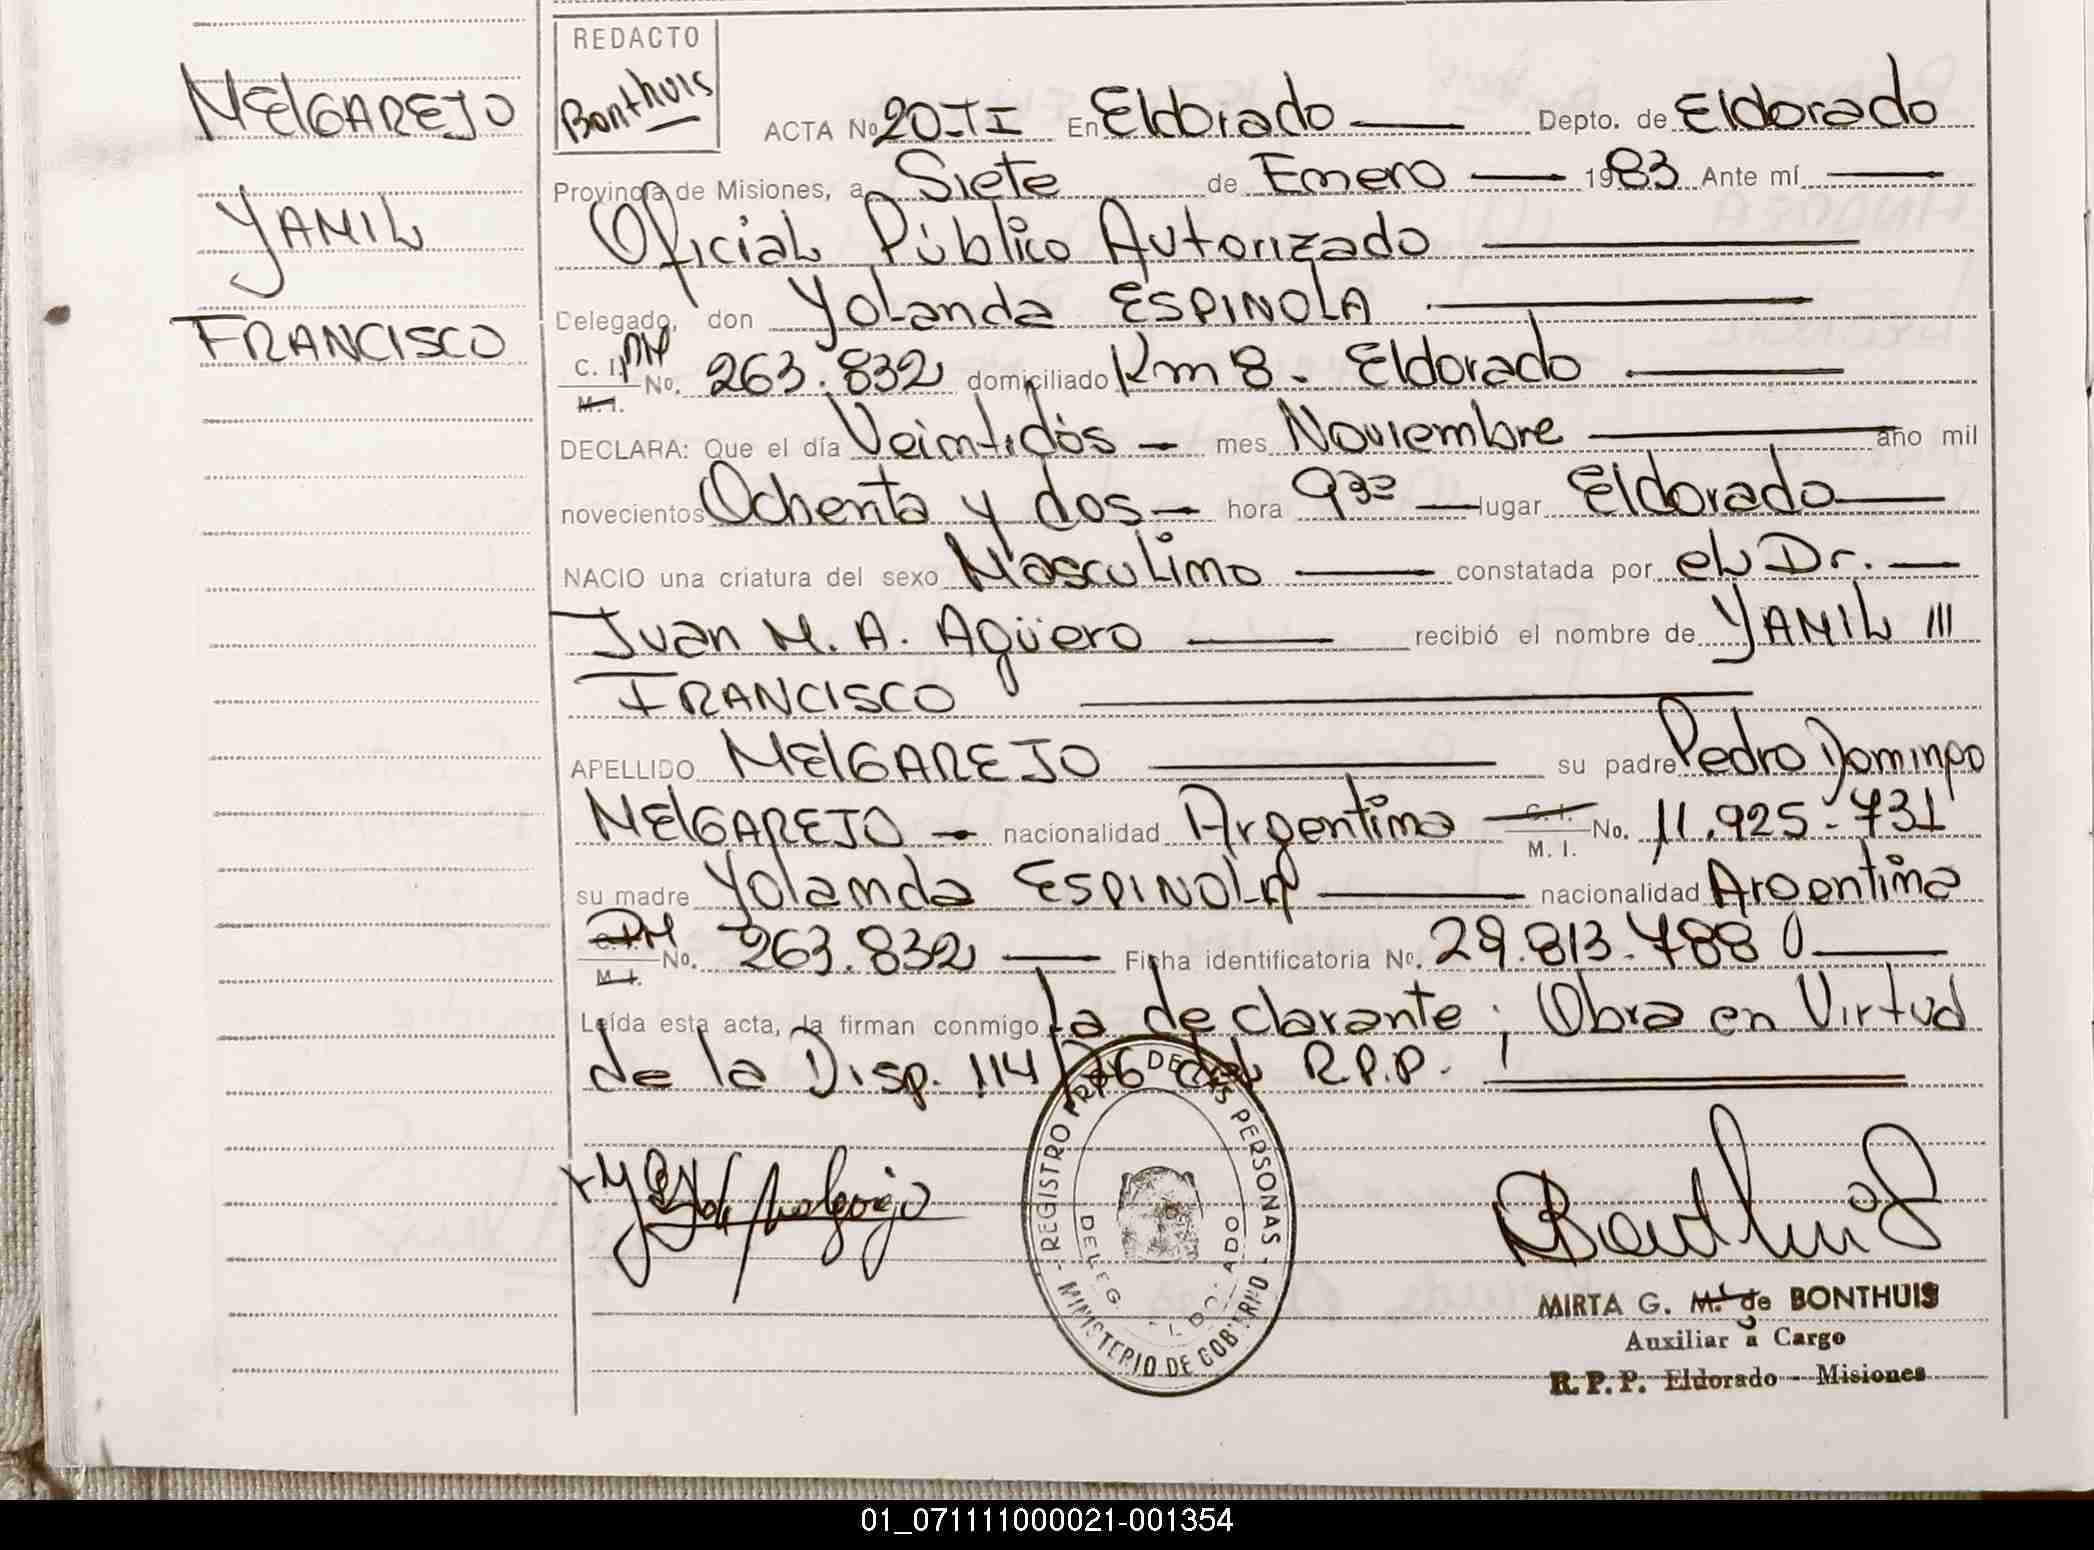 MELGAREJO
YAMIL
FRANCISCO
REDACTO
Bonthuis
ACTA No 20-TI En Eldorado Depto. de Eldorado
Provincia de Misiones, a Siete de Enero 1983 Ante mí
Oficial Público Autorizado
Delegado, don Yolanda ESPINOLA
C. I. DNI
M. I. No. 263.832 domiciliado Km 8 - Eldorado
DECLARA: Que el día Veintidós - mes Noviembre año mil
novecientos Ochenta y dos - hora 930 lugar Eldorado
NACIO una criatura del sexo Masculino constatada por el Dr.
Juan M. A. Agüero recibió el nombre de YAMIL
FRANCISCO
APELLIDO MELGAREJO su padre Pedro Domingo
MELGAREJO - nacionalidad Argentina C. I.
M. I. No. 11.925.731
su madre Yolanda ESPINOLA nacionalidad Argentina
M. I. No. 263.832 Ficha identificatoria No. 29.813.788
Leída esta acta, la firman conmigo la declarante ; Obra en Virtud
de la Disp. 114/76 del R.P.P.
REGISTRO PROV. DE LAS PERSONAS - MINISTERIO DE GOBIERNO
DELEG. ELDORADO
Bonthuis
MIRTA G. M. de BONTHUIS
Auxiliar a Cargo
R. P. P. Eldorado - Misiones
01_071111000021-001354